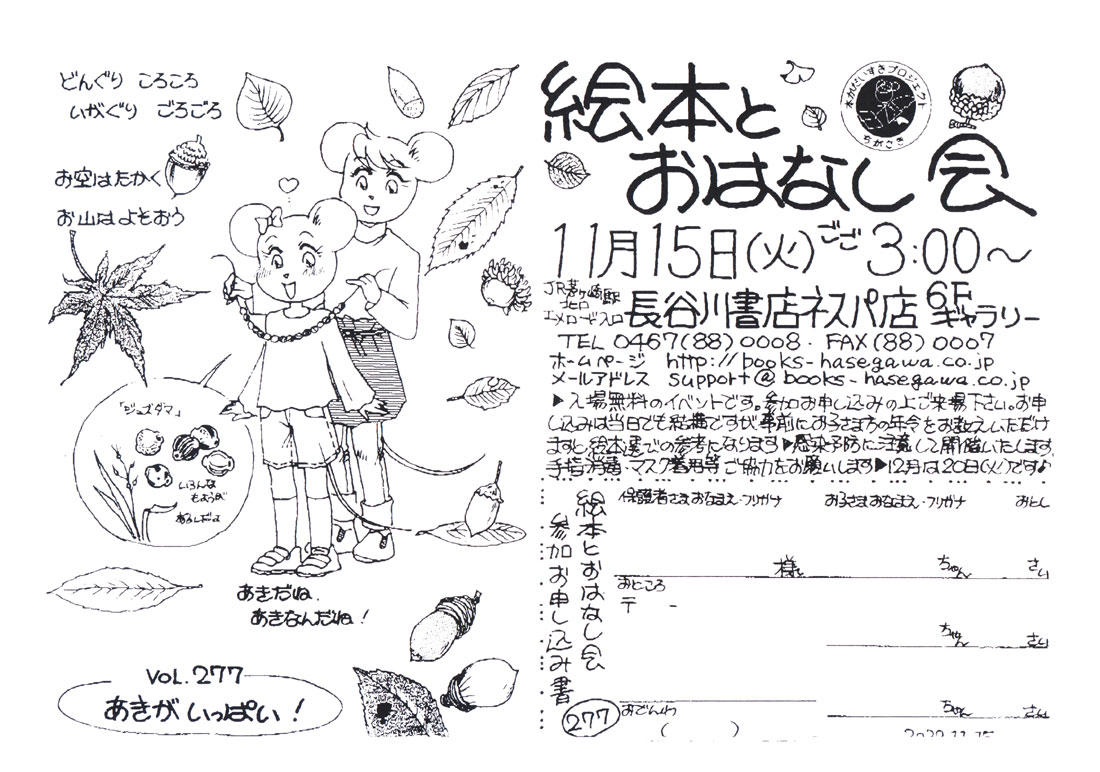 どんぐり ころころ
いがぐり ごろごろ
お空はたかく
お山はよそおう
「ジュズダマ」
いろんな
もようが
あるしだよ
あきだね、
あきなんだね！
VOL.277
あきが いっぱい！
絵本と
おはなし会
本だいすきプロジェクト
ちがさき
11月15日(火)ごご3:00〜
JR茅ヶ崎駅
北口
エメロード入口
長谷川書店ネスパ店
6F
ギャラリー
TEL 0467(88)0008・FAX(88)0007
ホームページ http://books-hasegawa.co.jp
メールアドレス support@books-hasegawa.co.jp
▶入場無料のイベントです。参加お申し込みの上ご来場下さい。お申
し込みは当日でも結構ですが、事前にお子さま方の年令をお教えいただけ
ますと絵本選びの参考になります▶感染予防に注意して開催いたします。
手指消毒・マスク着用等ご協力をお願いします▶12月は20日(火)です♪
絵本とおはなし会
参加お申し込み書
277
保護者さまおなまえ・フリガナ お子さまおなまえ・フリガナ おとし
様 ちゃん さい
おところ
〒 -
ちゃん さい
おでんわ
( )
ちゃん さい
2022.11.15